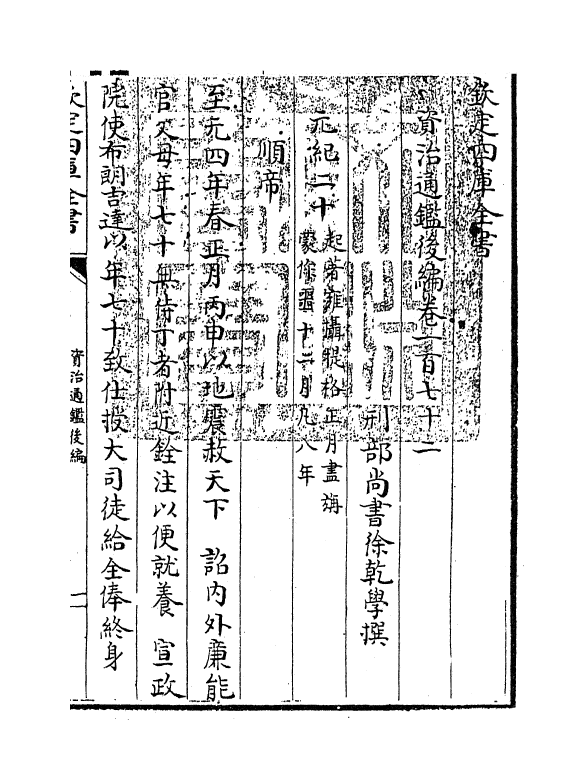 欽定四庫全書
資治通鑑後編卷一百七十二
刑部尚書徐乾學撰
元紀二十起著雍攝提格正月盡旃
蒙作噩十二月凡八年
順帝
至元四年春正月丙申以地震赦天下 詔內外廉能
官父母年七十無侍丁者附近銓注以便就養 宣政
院使布朗吉達以年七十致仕授大司徒給全俸終身
欽定四庫全書
資治通鑑後編